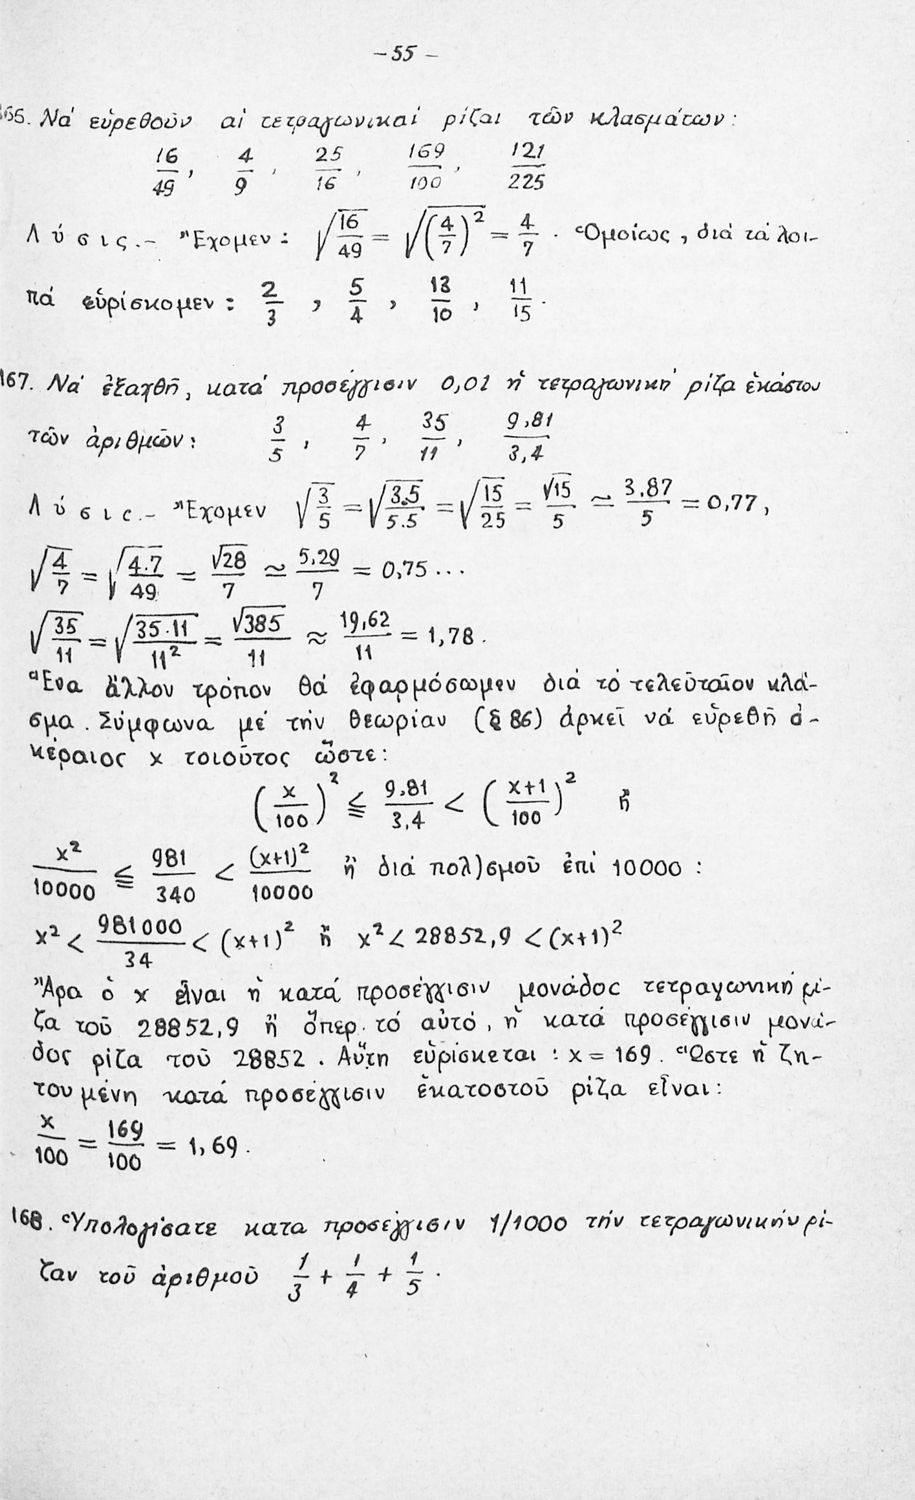 -55-
166. Νά εὑρεθοῦν αἱ τετραγωνικαί ρίζαι τῶν κλασμάτων:
16/49, 4/9, 25/16, 169/100, 121/225
Λύσις.- Ἔχομεν: √(16/49) = √((4/7)²) = 4/7. Ὁμοίως, διά τά λοι-
πά εὑρίσκομεν: 2/3, 5/4, 13/10, 11/15.
167. Νά ἐξαχθῆ, κατά προσέγγισιν 0,01 ἡ τετραγωνική ρίζα ἑκάστου
τῶν ἀριθμῶν: 3/5, 4/7, 35/11, 9,81/3,4
Λύσις.- Ἔχομεν √(3/5) = √(3.5/5.5) = √(15/25) = √15/5 ≃ 3,87/5 = 0,77,
√(4/7) = √(4·7/49) = √28/7 ≃ 5,29/7 = 0,75...
√(35/11) = √(35·11/11²) = √385/11 ≈ 19,62/11 = 1,78.
Ἕνα ἄλλον τρόπον θά ἐφαρμόσωμεν διά τό τελευταῖον κλά-
σμα. Σύμφωνα μέ τήν θεωρίαν (§ 86) ἀρκεῖ νά εὑρεθῆ ἀ-
κέραιος x τοιοῦτος ὥστε:
(x/100)² ≦ 9,81/3,4 < ((x+1)/100)² ἤ
x²/10000 ≦ 981/340 < (x+1)²/10000 ἤ διά πολ)σμοῦ ἐπί 10000:
x² < 981000/34 < (x+1)² ἤ x² < 28852,9 < (x+1)²
Ἄρα ὁ x εἶναι ἡ κατά προσέγγισιν μονάδος τετραγωνική ρί-
ζα τοῦ 28852,9 ἤ ὅπερ τό αὐτό, ἡ κατά προσέγγισιν μονά-
δος ρίζα τοῦ 28852. Αὕτη εὑρίσκεται: x = 169. Ὥστε ἡ ζη-
τουμένη κατά προσέγγισιν ἑκατοστοῦ ρίζα εἶναι:
x/100 = 169/100 = 1,69.
168. Ὑπολογίσατε κατα προσέγγισιν 1/1000 τήν τετραγωνικήν ρί-
ζαν τοῦ ἀριθμοῦ 1/3 + 1/4 + 1/5.